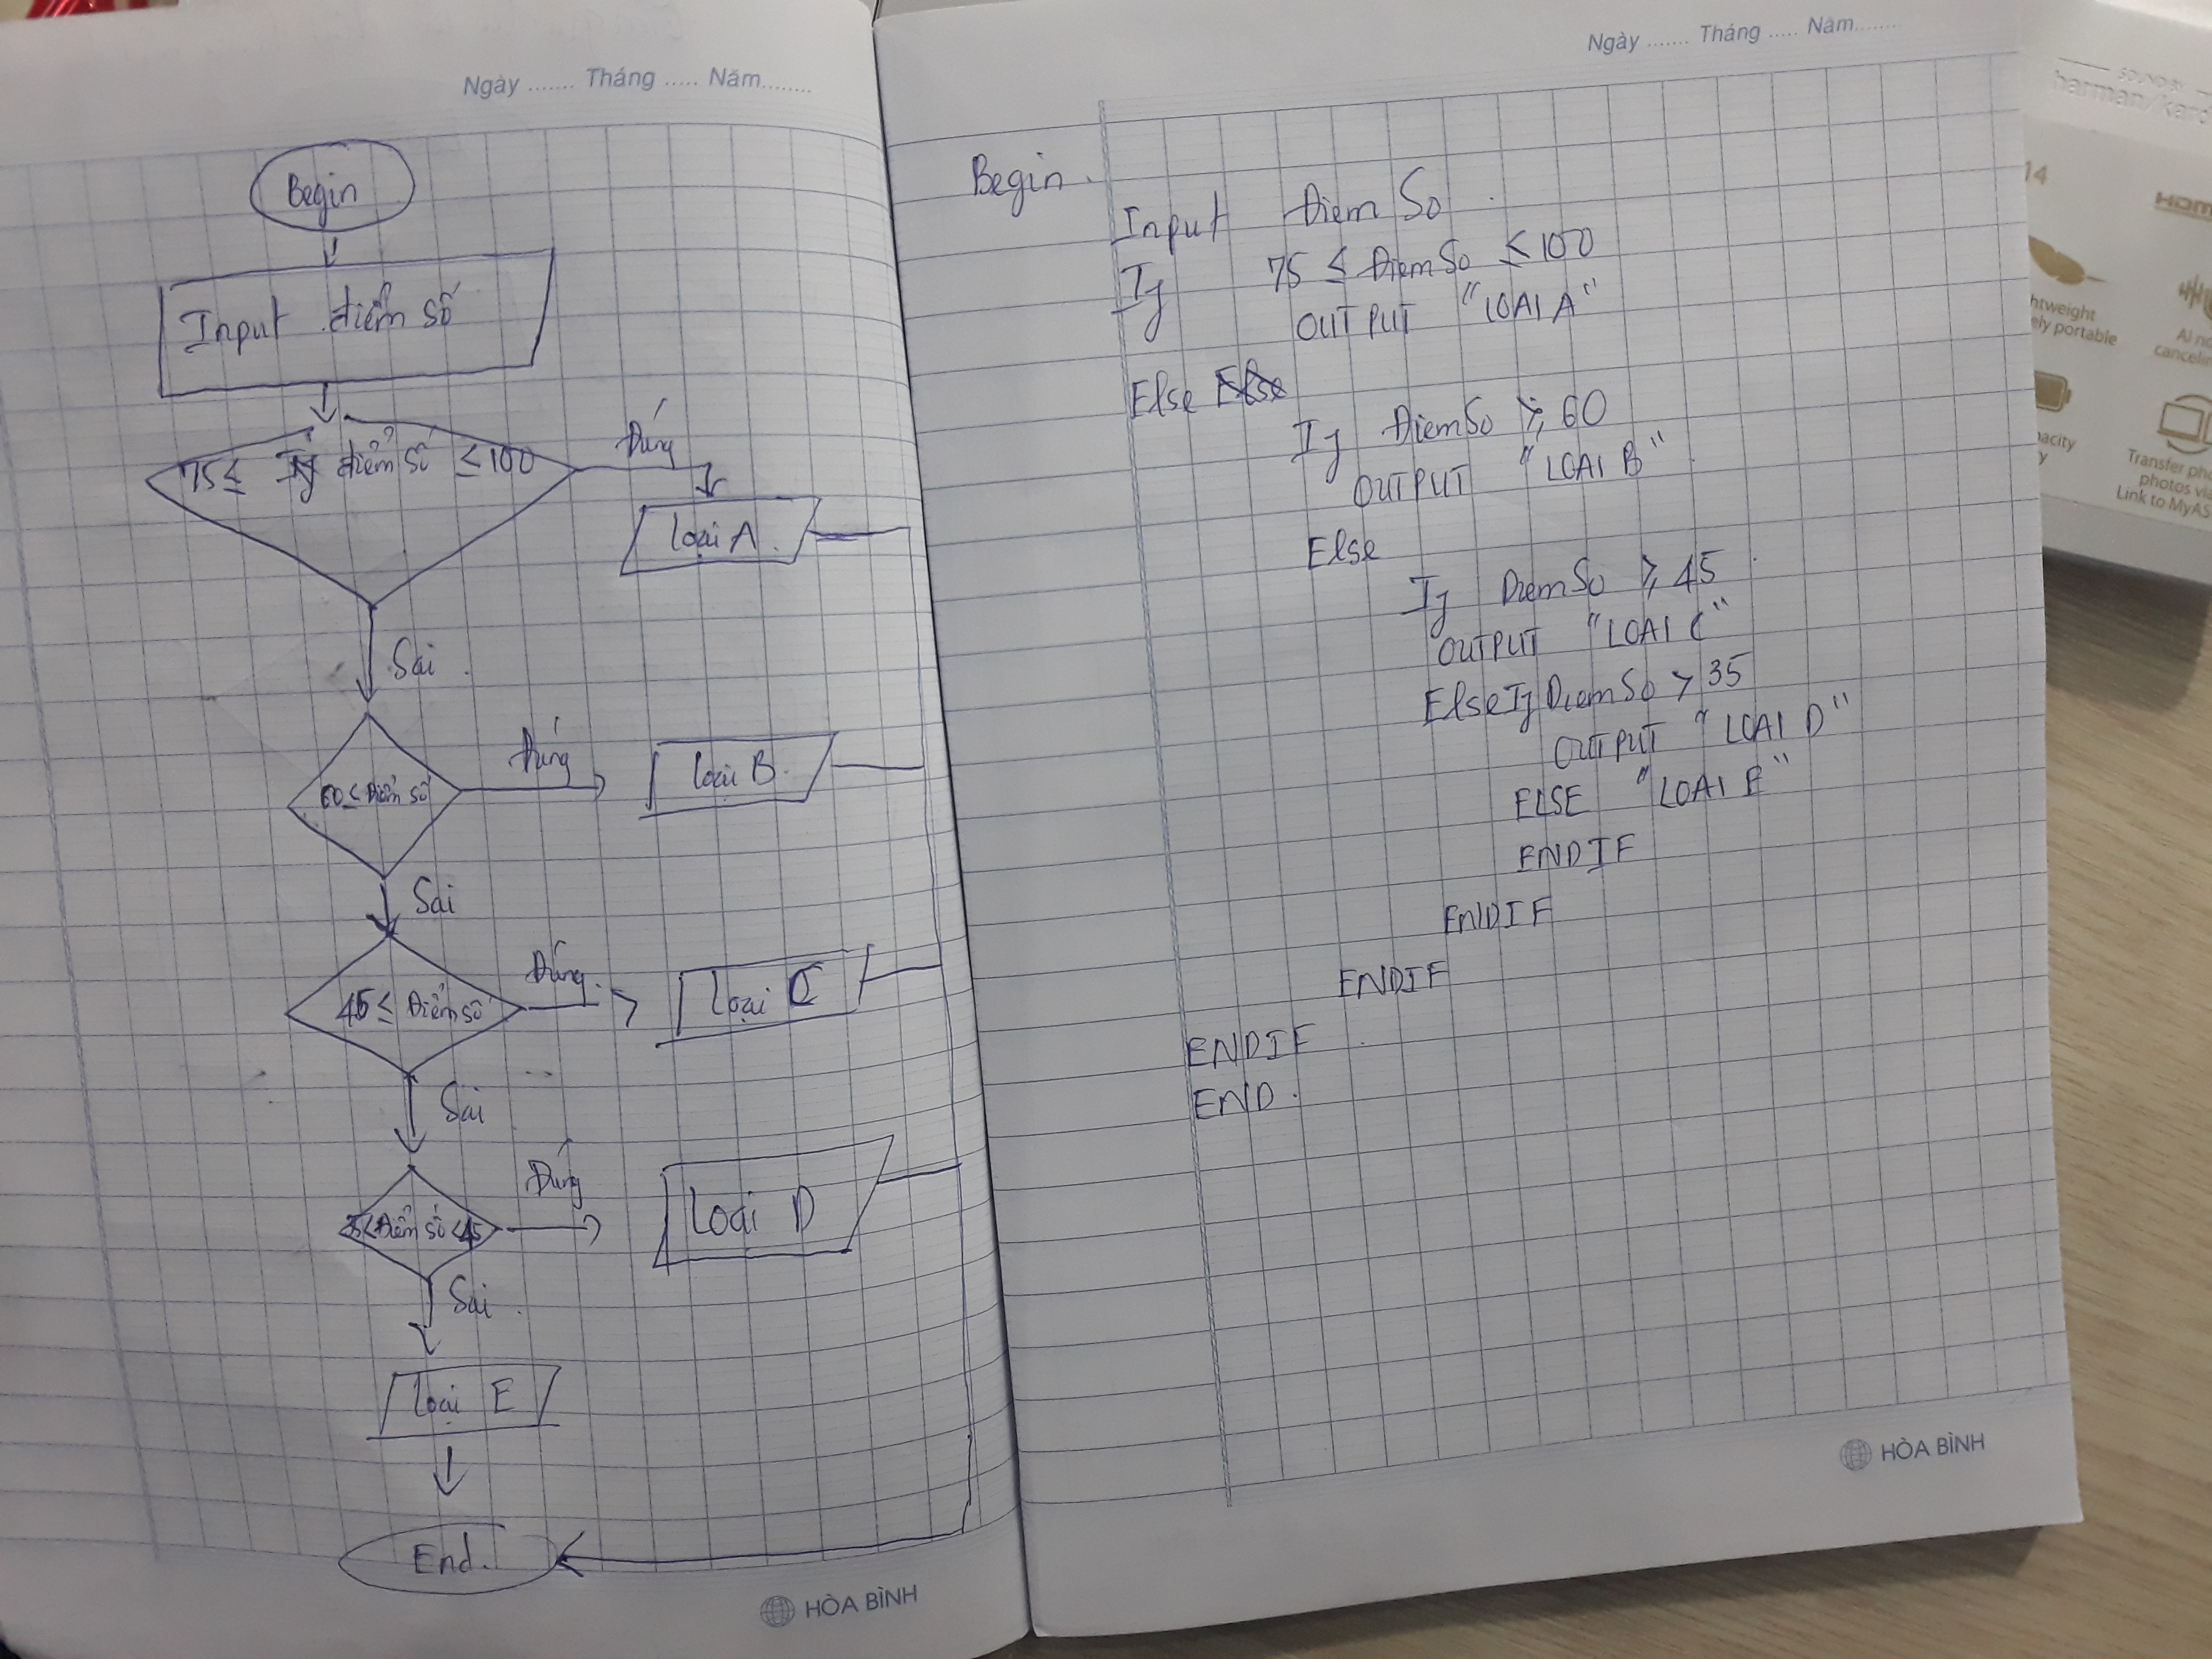 Ngày ....... Tháng ..... Năm........
Begin
Input điểm số
75 ≤ điểm số ≤ 100
Đúng
Loại A.
Sai.
60 ≤ Điểm số
Đúng
Loại B.
Sai
45 ≤ Điểm số
Đúng.
Loại C
Sai
35 < Điểm số < 45
Đúng
Loại D
Sai.
Loại E
End.
HÒA BÌNH
Ngày ....... Tháng ..... Năm........
Begin.
Input ĐiemSo.
If 75 ≤ ĐiemSo ≤ 100
OUTPUT "LOAI A"
Else Else
If ĐiemSo ≥ 60
OUTPUT "LOAI B"
Else
If DiemSo ≥ 45
OUTPUT "LOAI C"
ElseIf DiemSo > 35
OUTPUT "LOAI D"
ELSE "LOAI E"
ENDIF
ENDIF
ENDIF
ENDIF
END.
HÒA BÌNH
SOUND BY
harman/kard
14
HDMI
htweight
ely portable
AI no
cancelin
acity
y
Transfer pho
photos via
Link to MyAS